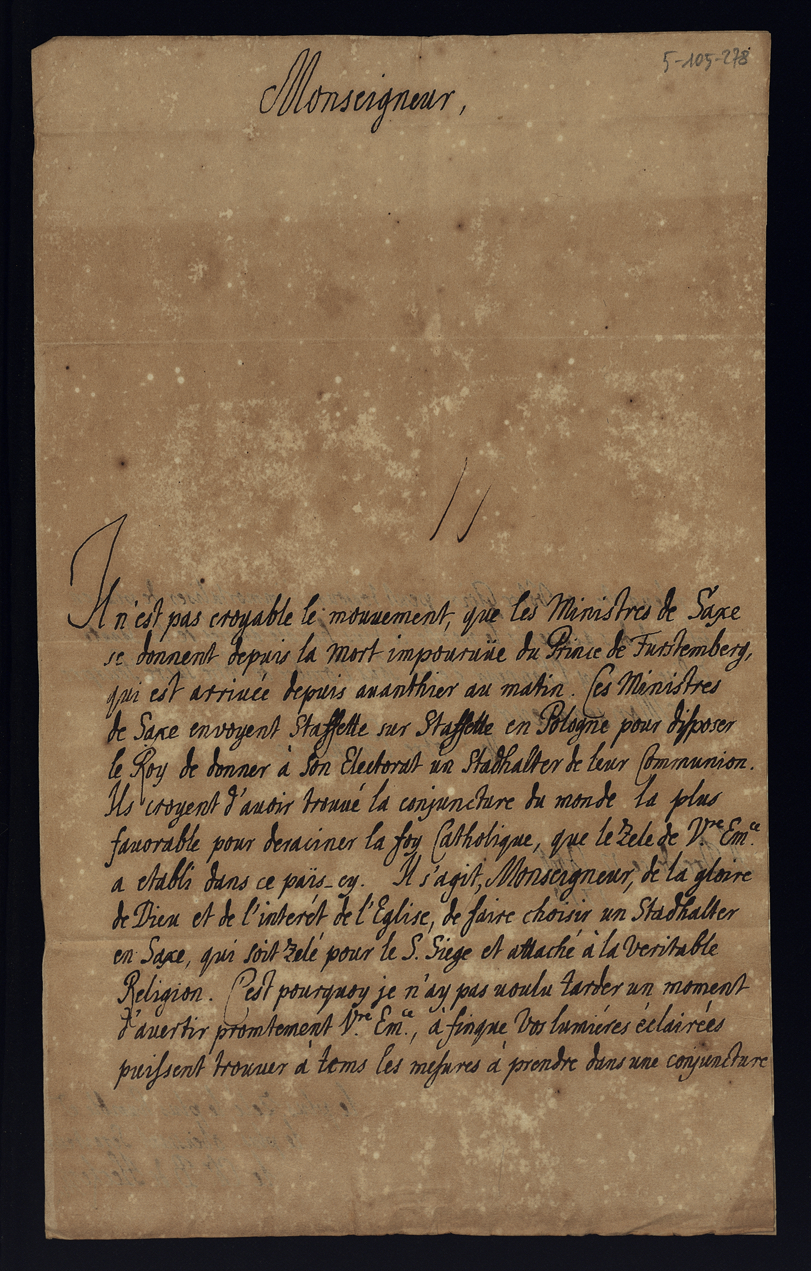 5-105-278
Monseigneur,
Il n'est pas croyable le mouuement, que les Ministres de Saxe
se donnent depuis la mort impouruüe du Prince de Furstemberg,
qui est arriuée depuis auanthier au matin. Ces Ministres
de Saxe envoyent Staffette sur Staffette en Pologne pour disposer
le Roy de donner à son Electorat un Stadhalter de leur Communion.
Ils croyent d'auoir trouué la conjuncture du monde la plus
favorable pour deraciner la foy Catholique, que le Zele de V.re Em.ce
a etabli dans ce païs-cy. Il s'agit, Monseigneur, de la gloire
de Dieu et de l'interét de l'Eglise, de faire choisir un Stadhalter
en Saxe, qui soit Zelé pour le S. Siege et attaché à la Veritable
Religion. C'est pourquoy je n'ay pas uoulu tarder un moment
d'avertir promtement V.re Em.ce, à finque Vos lumiéres éclairées
puissent trouuer à tems les mesures à prendre dans une conjuncture